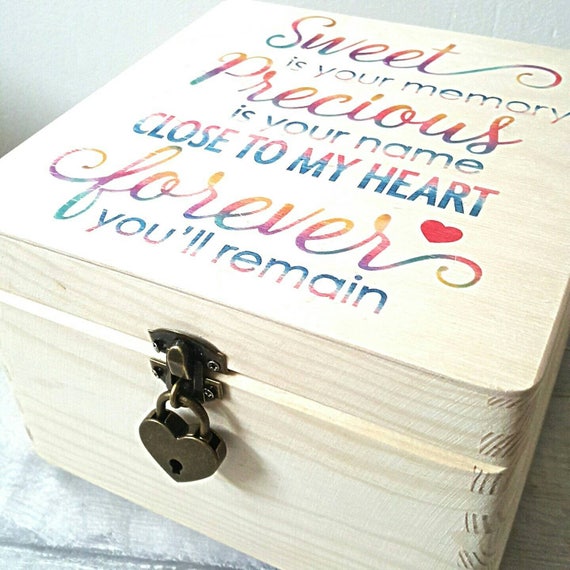 Sweet
is your memory
Precious
is your name
CLOSE TO MY HEART
forever
you'll remain